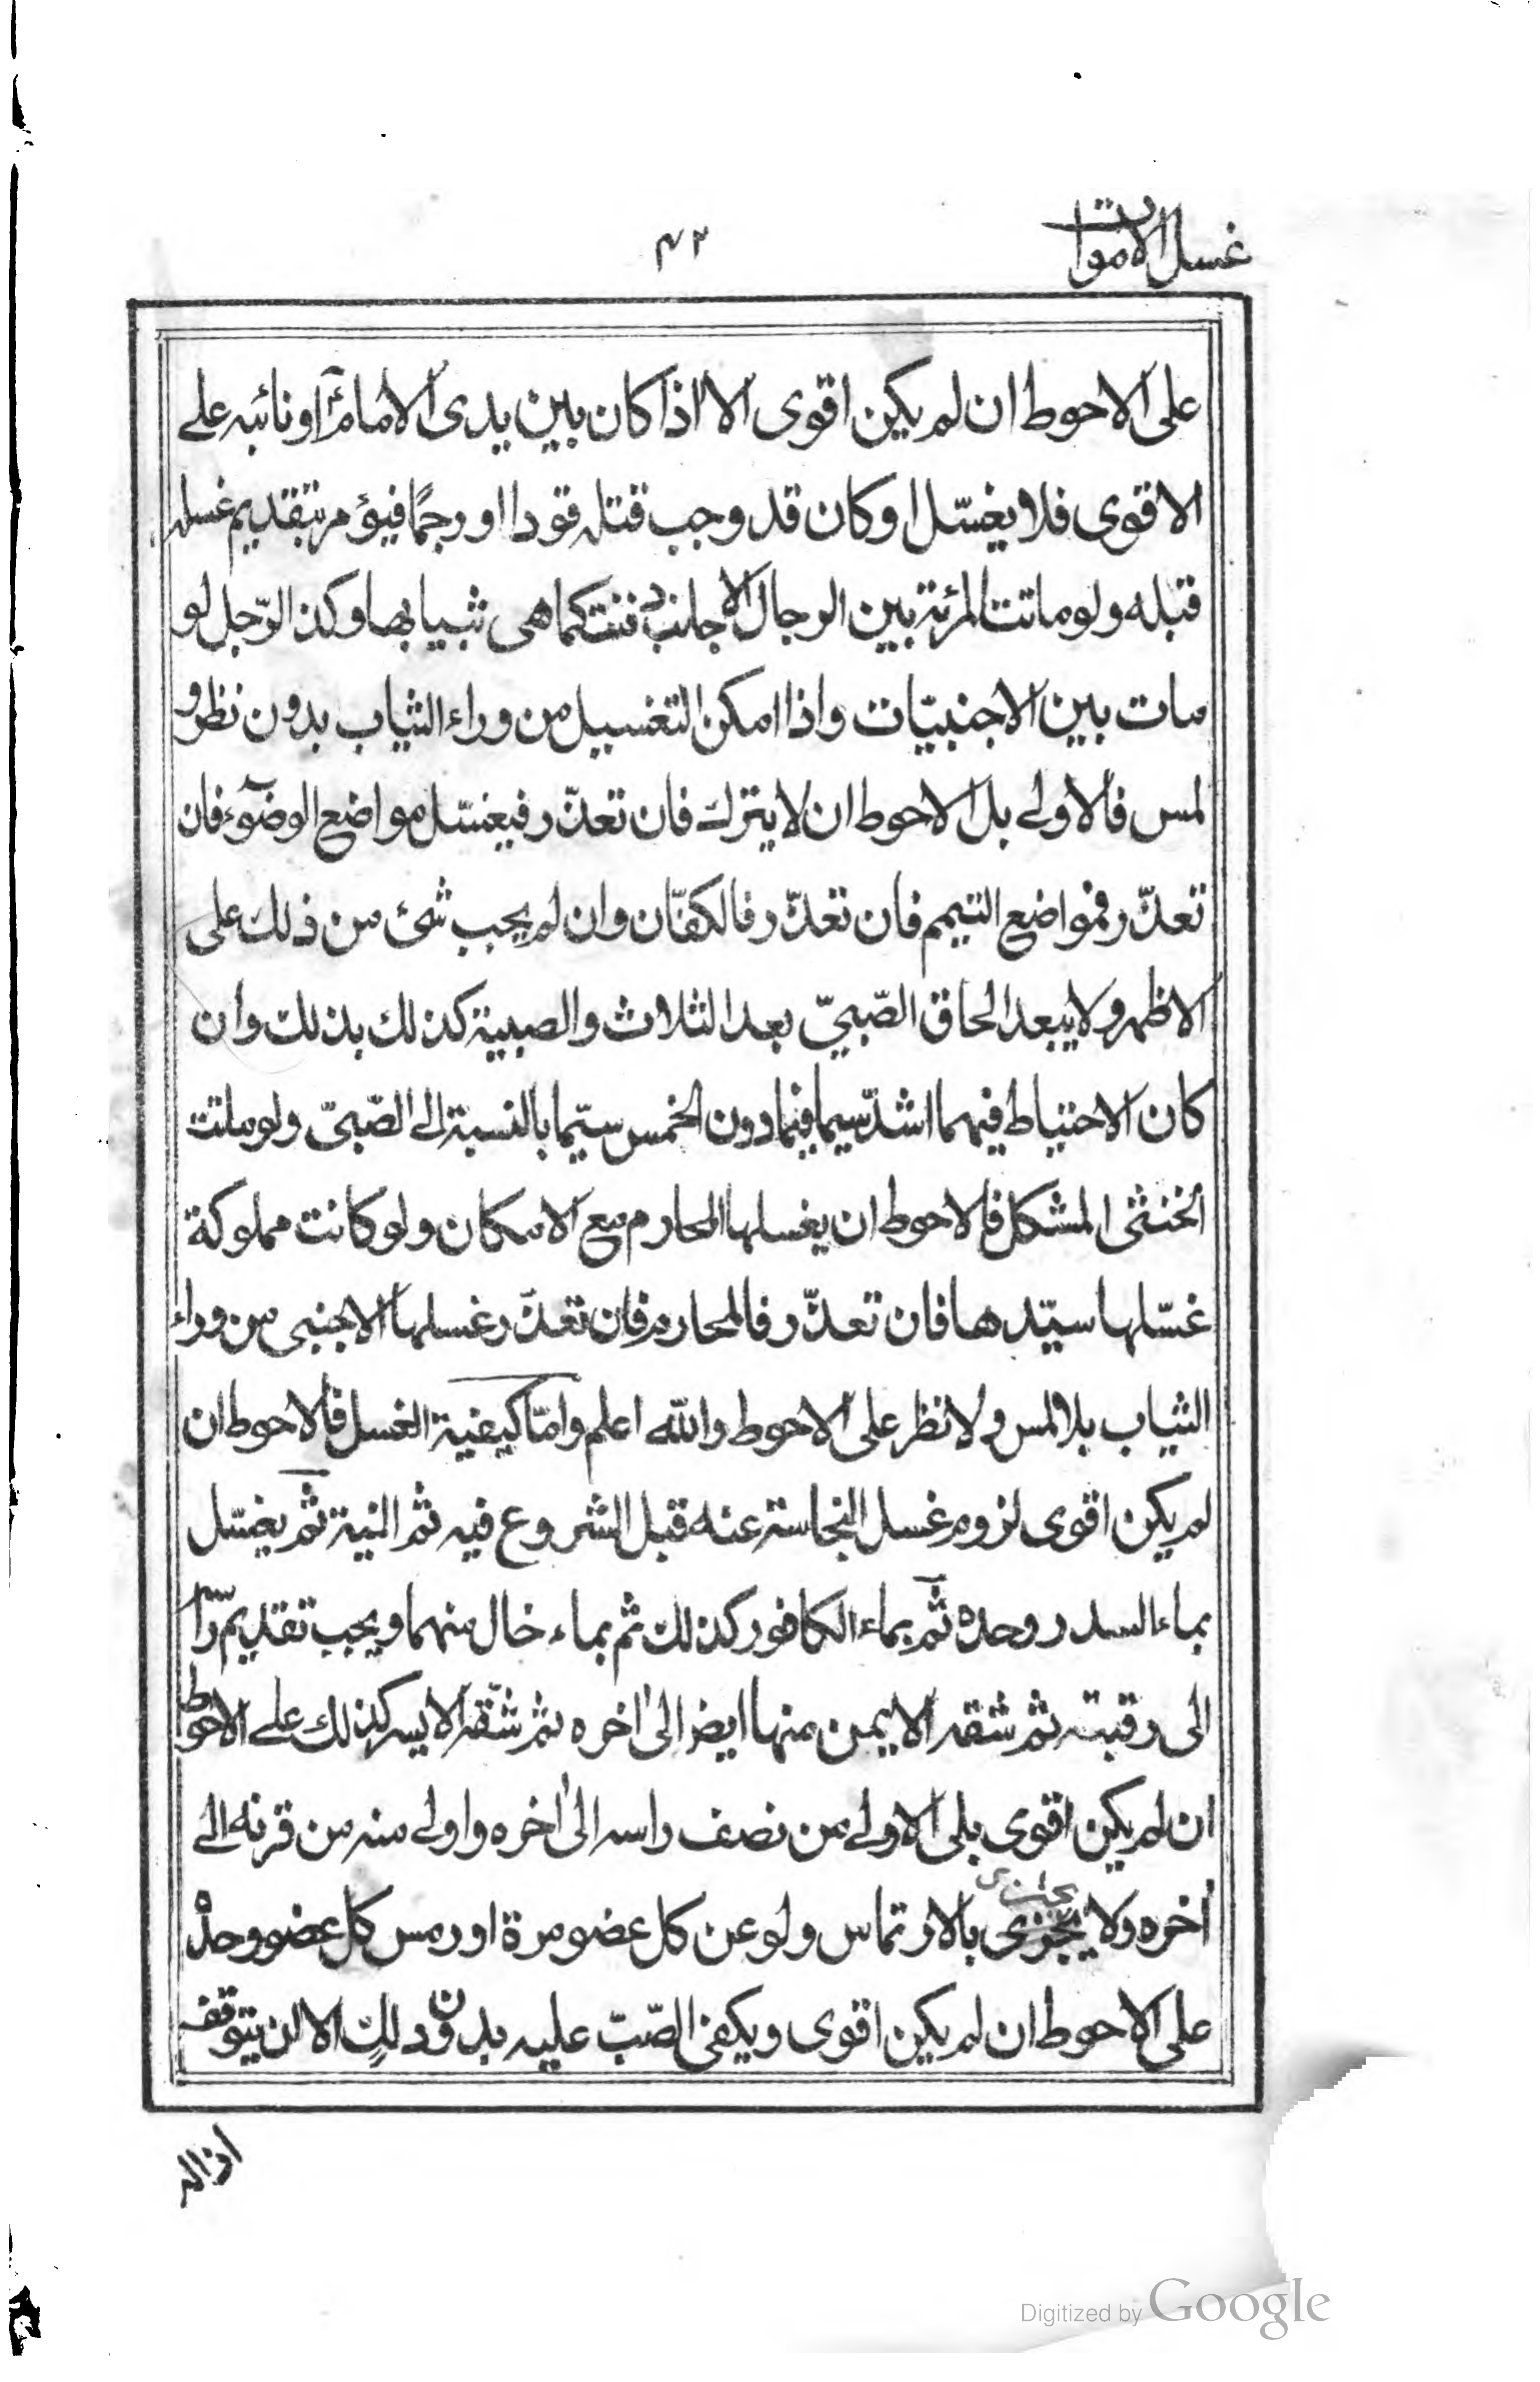 غسل الاموات
۴۲
على الاحوط ان لم يكن اقوى الا اذا كان بين يدى الامامؑ او نائبه على
الاقوى فلا يغسّل او كان قد وجب قتله قودا او رجمًا فيؤمر بتقديم غسله
قبله ولو ماتت المرئة بين الرجال الاجانب دفنت كما هى بثيابها وكذ الرّجل لو
مات بين الاجنبيّات واذا امكن التغسيل من وراء الثياب بدون نظر و
لمس فالاولى بل الاحوط ان لا يترك فان تعذّر فيغسّل مواضع الوضوٓء فان
تعذّر فمواضع التيمم فان تعذّر فالكفّان وان لم يجب شئ من ذلك على
الاظهر ولا يبعد الحاق الصّبىّ بعد الثلاث والصبية كذلك بذلك وان
كان الاحتياط فيهما اشدّ سيما فيما دون الخمس سيّما بالنسبة الى الصّبىّ ولو ماتت
الخنثى المشكل فالاحوط ان يغسلها المحارم مع الامكان ولو كانت مملوكة
غسّلها سيّدها فان تعذّر فالمحارم فان تعذّر غسلها الاجنبى من وراء
الثياب بلا لمس ولا نظر على الاحوط والله اعلم وامّا كيفية الغسل فالاحوط ان
لم يكن اقوى لزوم غسل النجاسة عنه قبل الشروع فيه ثم النية ثم يغسّل
بماء السدر وحده ثم بماء الكافور كذلك ثم بماء خال منهما ويجب تقديم راسه
الى رقبته ثم شقه الايمن منها ايضا الى اخره ثم شقّه الايسر كذلك على الاحوط
ان لم يكن اقوى بلى الاولى من نصف راسه الى اخره واولى منه من قرنه الى
اخره ولا يجتزى بالارتماس ولو عن كل عضو مرة او رمس كل عضو وحده
على الاحوط ان لم يكن اقوى ويكفى الصّبّ عليه بدون دلك الا ان يتوقف
ازاله
Digitized by Google